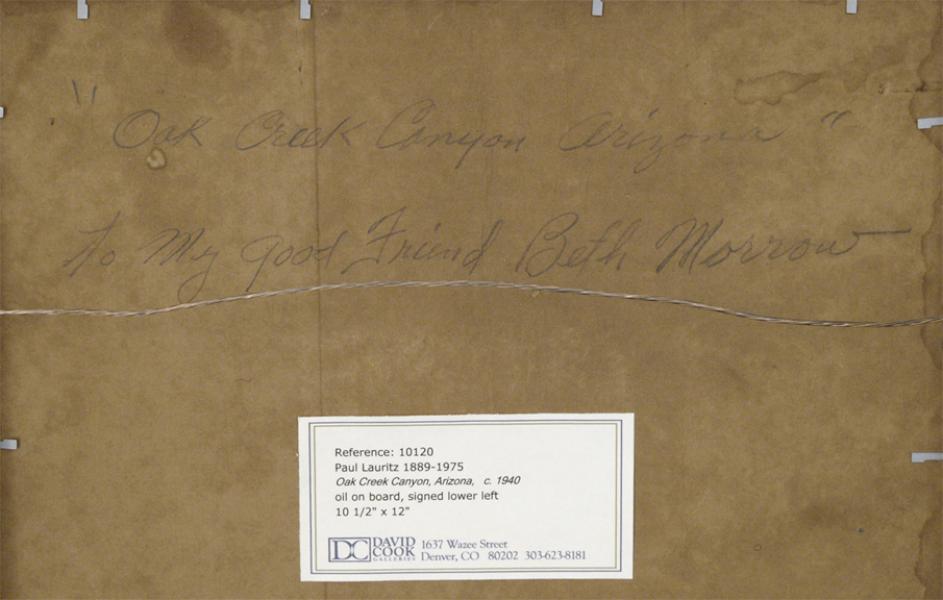 "Oak Creek Canyon Arizona"
To My good Friend Beth Morrow
Reference: 10120
Paul Lauritz 1889-1975
Oak Creek Canyon, Arizona, c. 1940
oil on board, signed lower left
10 1/2" x 12"
DC DAVID COOK GALLERIES
1637 Wazee Street
Denver, CO 80202 303-623-8181